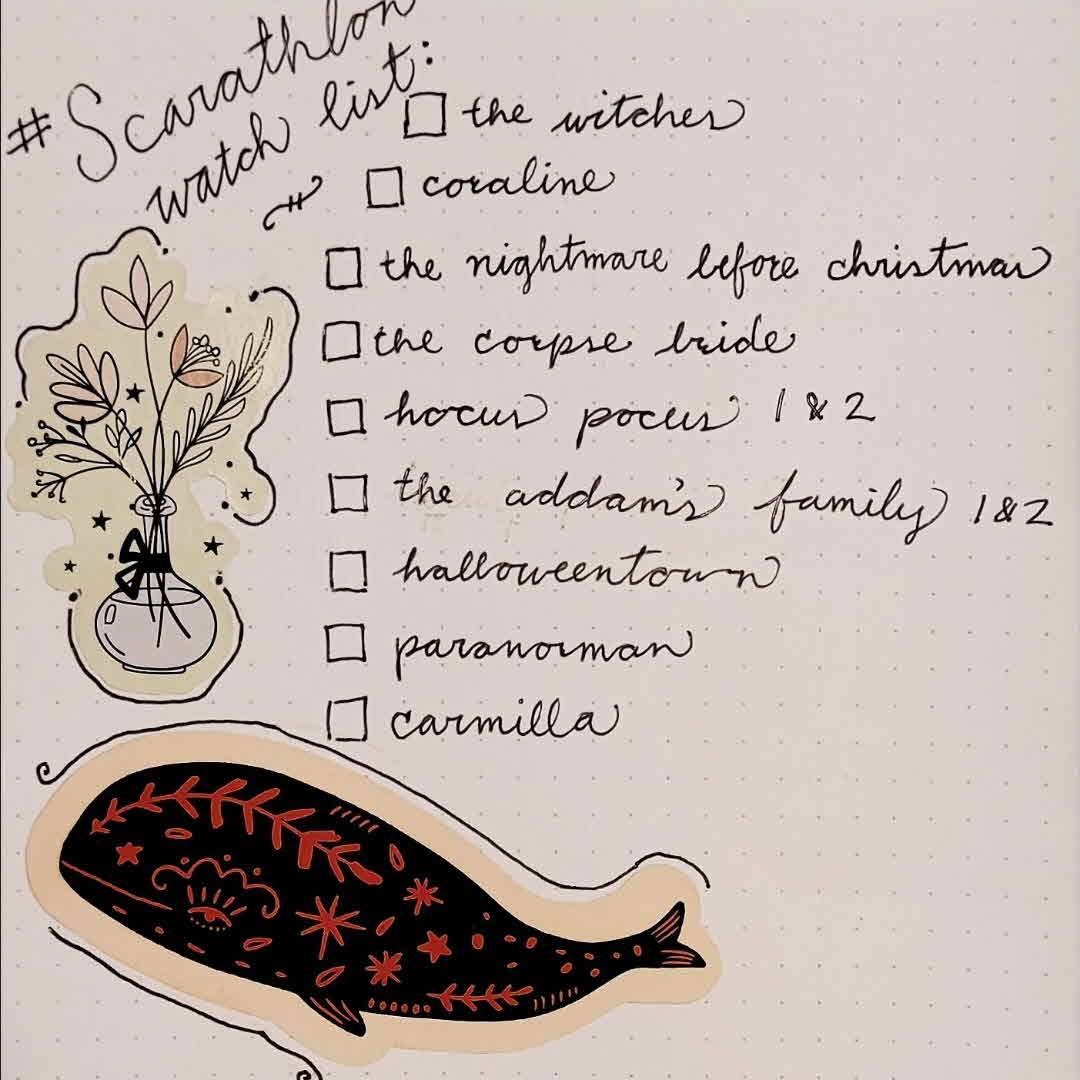 #Scarathlon
watch list:
the witches
coraline
the nightmare before christmas
the corpse bride
hocus pocus 1 & 2
the addam's family 1 & 2
halloweentown
paranorman
carmilla